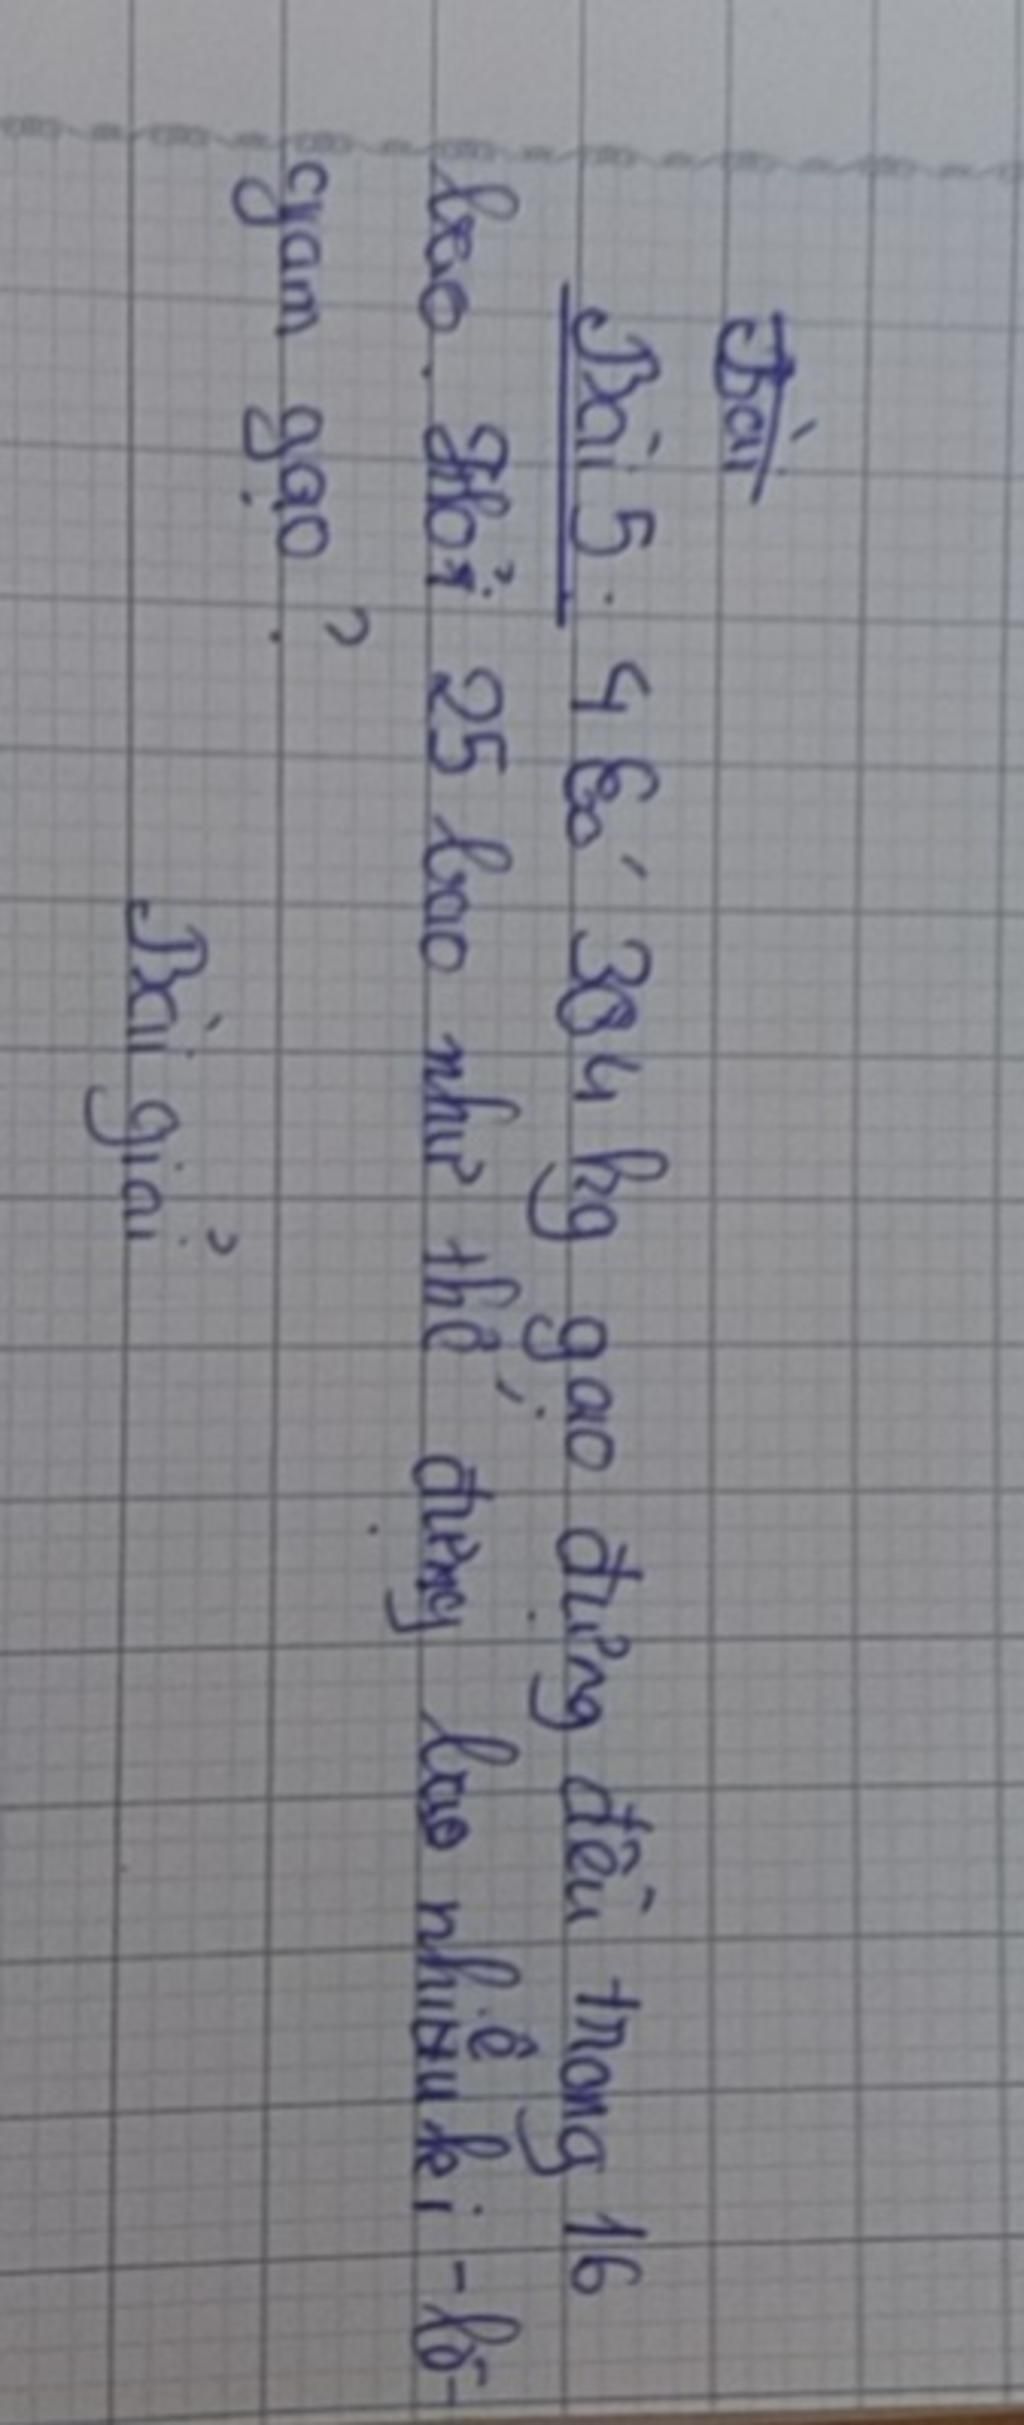 Bài
Bài 5. 4 Có 304 kg gạo đựng đều trong 16
bao. Hỏi 25 bao như thế đựng bao nhiêu ki-lô-
gam gạo?
Bài giải